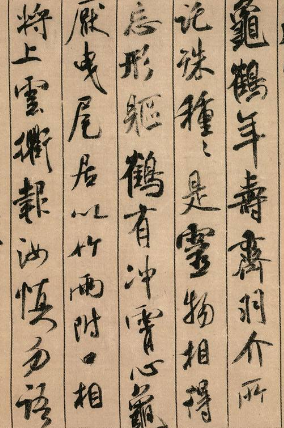 龜鶴年壽齊羽介所
託殊種種是靈物相得
忘形軀鶴有冲霄心龜
厭曳尾居以竹兩附口相
将上雲衢報汝慎勿語